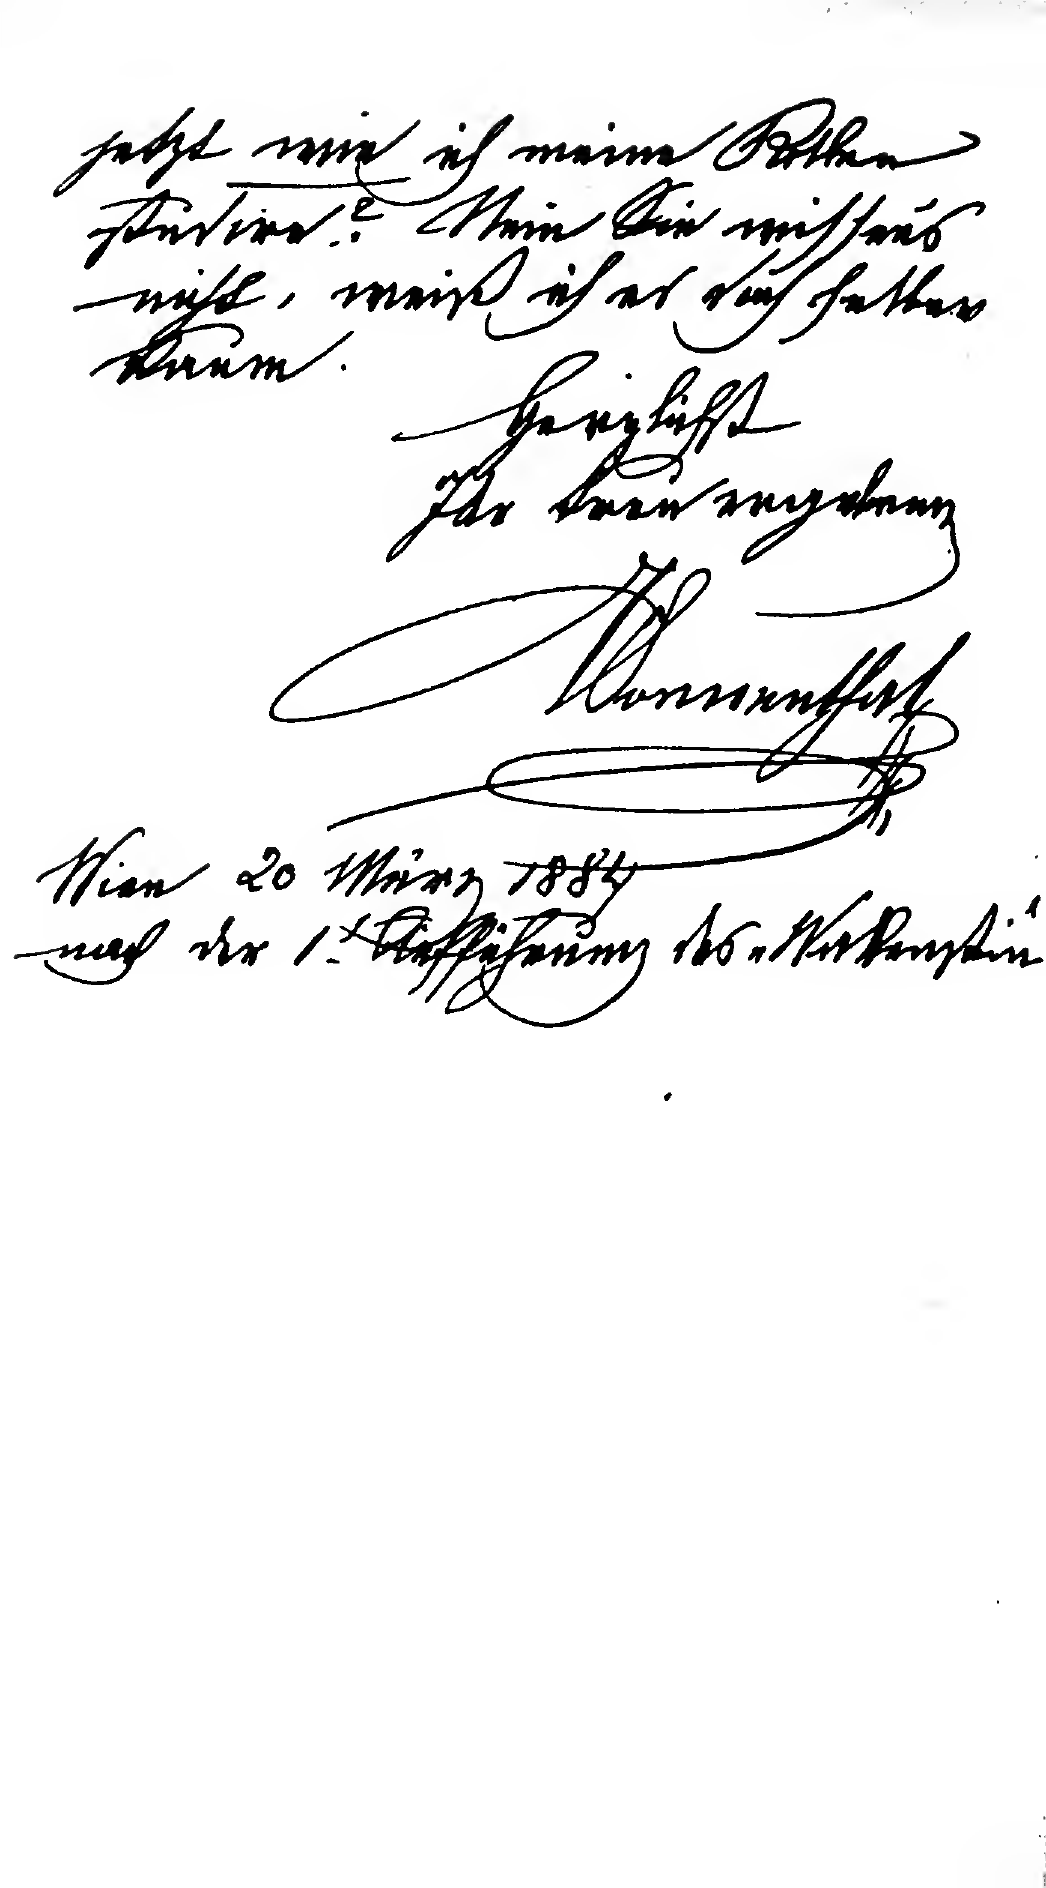 jetzt wie ich meine Rollen
studire? Nein Sie wissens
nicht, weiß ich es doch selber
kaum.
Herzlichst
Ihr treu ergebener
Sonnenthal
Wien 20 März 1884
nach der 1t Aufführung des „Wallenstein"